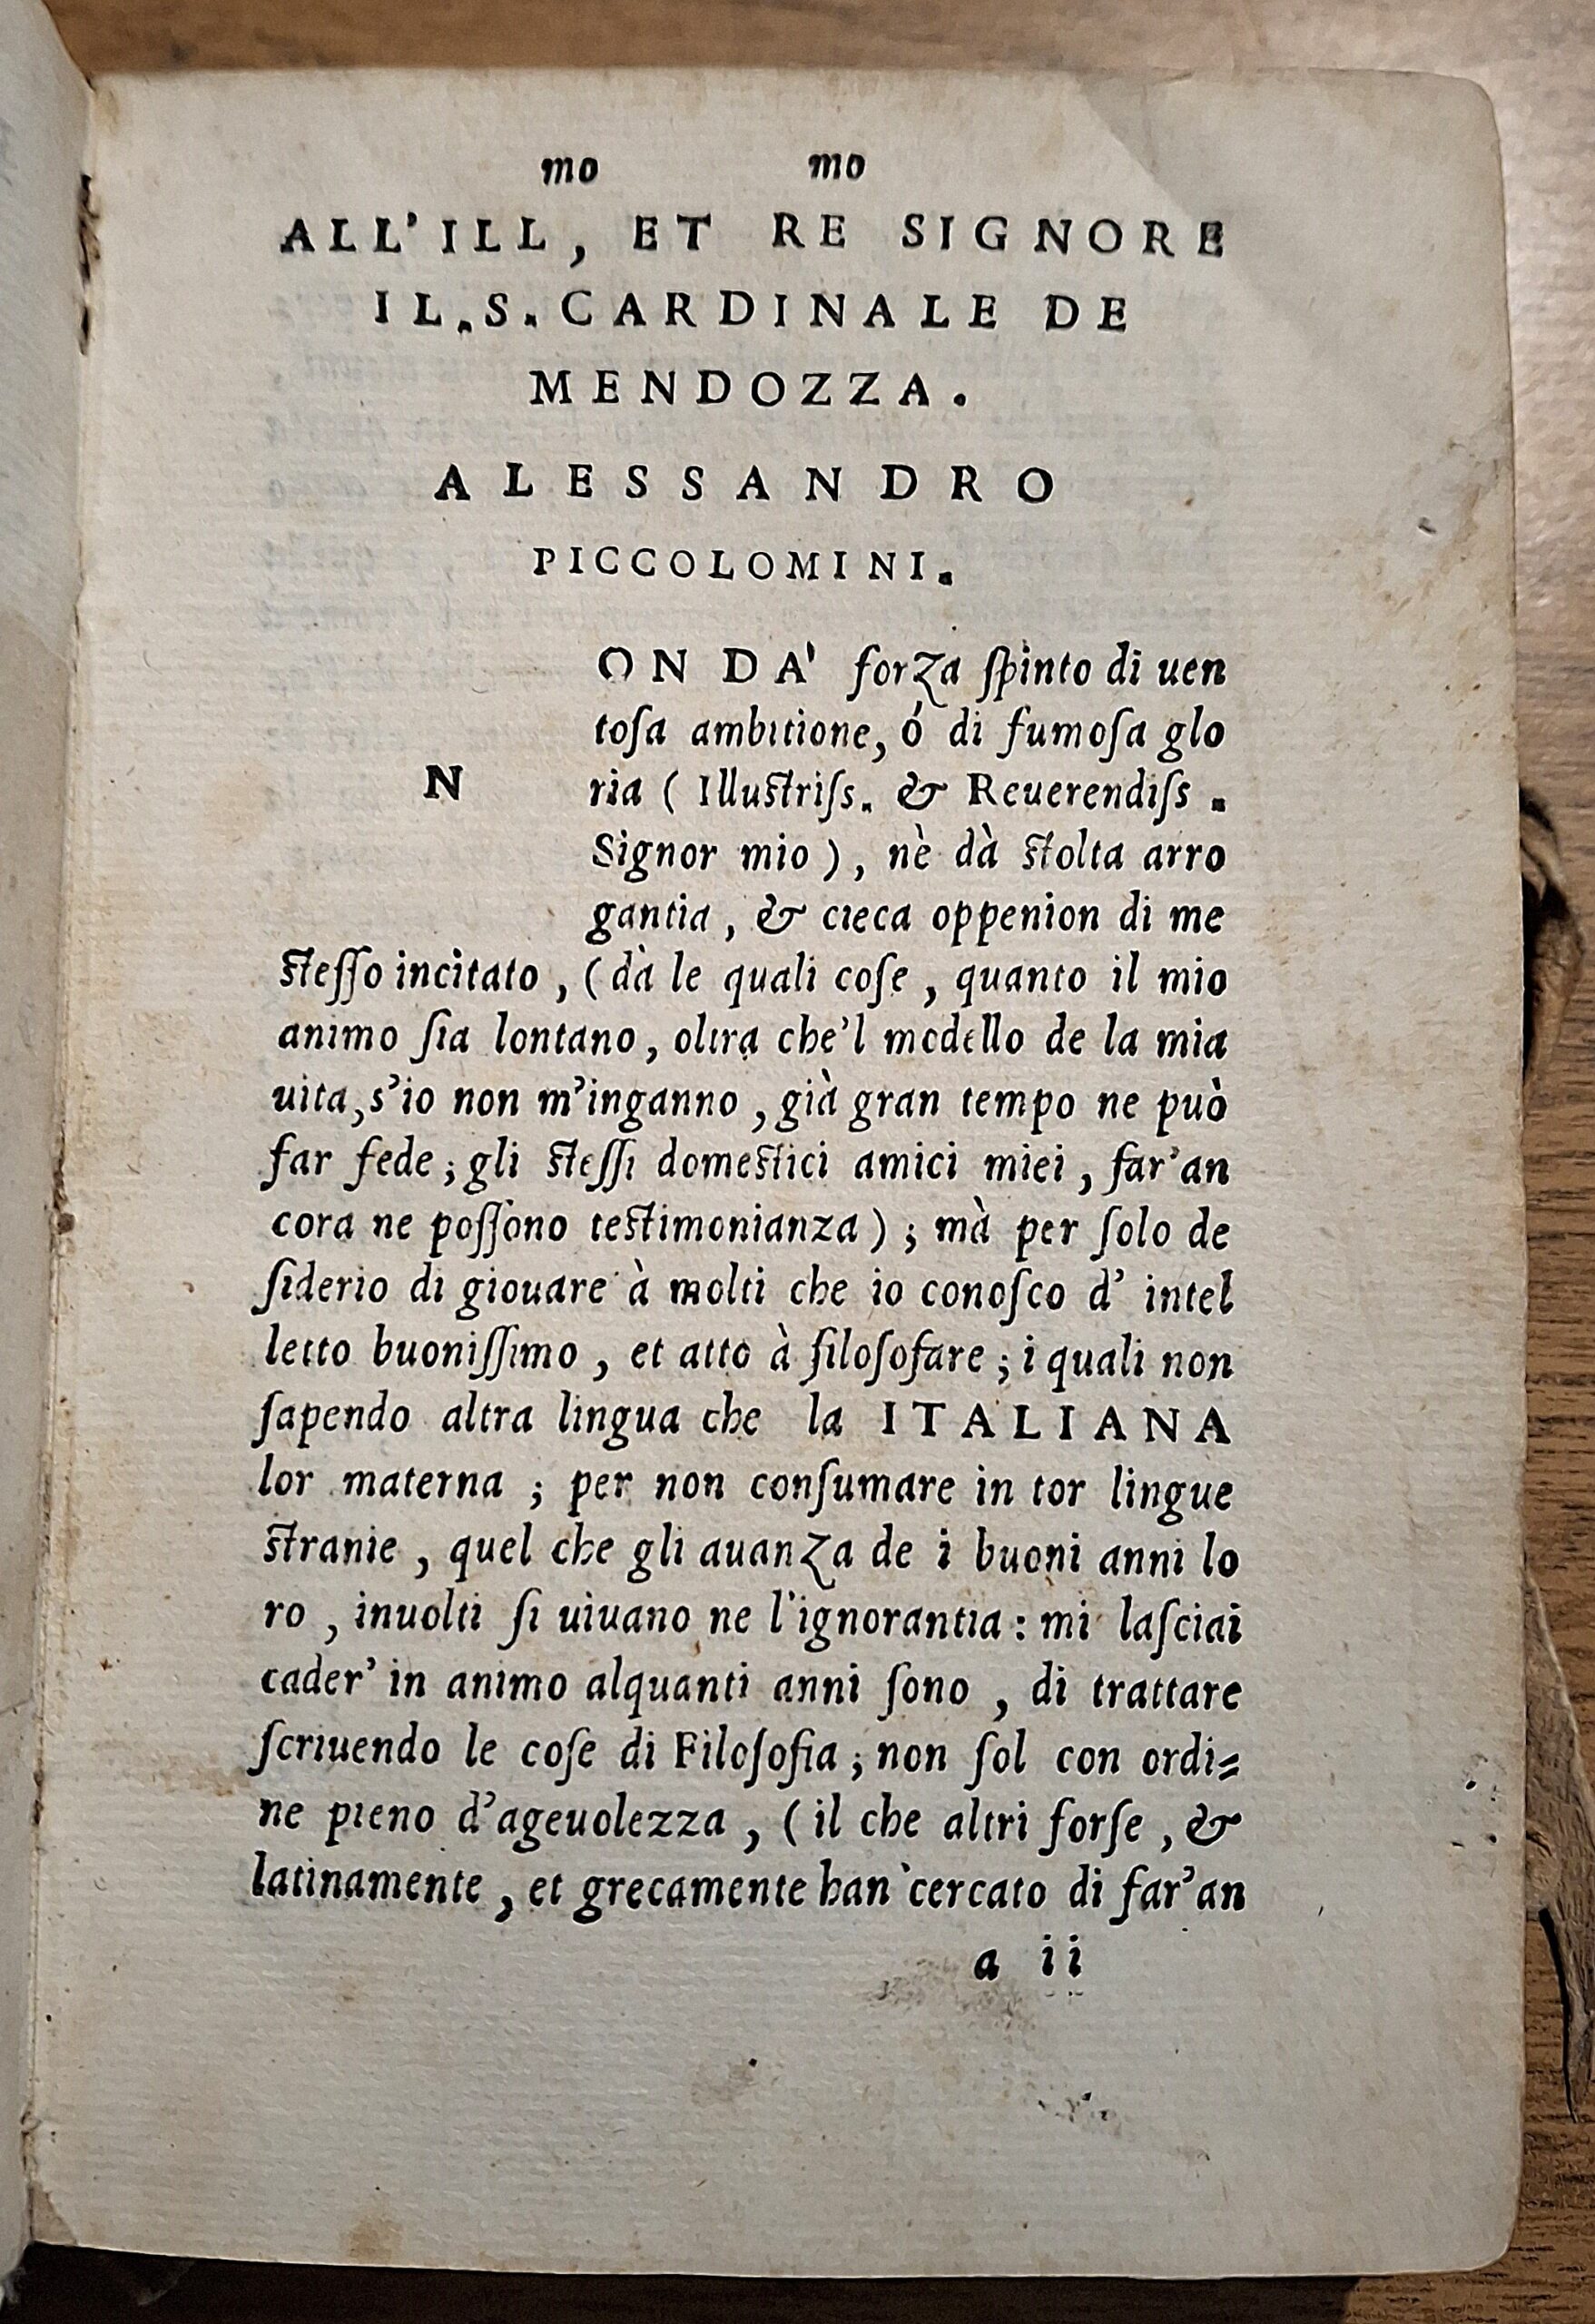 mo mo
ALL'ILL, ET RE SIGNORE
IL.S.CARDINALE DE
MENDOZZA.
ALESSANDRO
PICCOLOMINI.
N
ON DA' forza ſpinto di uen
toſa ambitione, ó di fumoſa glo
ria ( Illuſtriſs. & Reuerendiſs .
Signor mio ) , nè dà ſtolta arro
gantia , & cieca oppenion di me
ſteſſo incitato , ( dà le quali coſe , quanto il mio
animo ſia lontano , oltra che'l modello de la mia
uita, s'io non m'inganno , già gran tempo ne può
far fede ; gli ſteſſi domeſtici amici miei , far'an
cora ne poſſono teſtimonianza ) ; mà per ſolo de
ſiderio di giouare à molti che io conoſco d' intel
letto buoniſſimo , et atto à filoſofare ; i quali non
ſapendo altra lingua che la ITALIANA
lor materna ; per non conſumare in tor lingue
ſtranie , quel che gli auanza de i buoni anni lo
ro , inuolti ſi uiuano ne l'ignorantia : mi laſciai
cader' in animo alquanti anni ſono , di trattare
ſcriuendo le coſe di Filoſofia ; non ſol con ordi=
ne pieno d'ageuolezza , ( il che altri forſe , &
latinamente , et grecamente han cercato di far'an
a ii